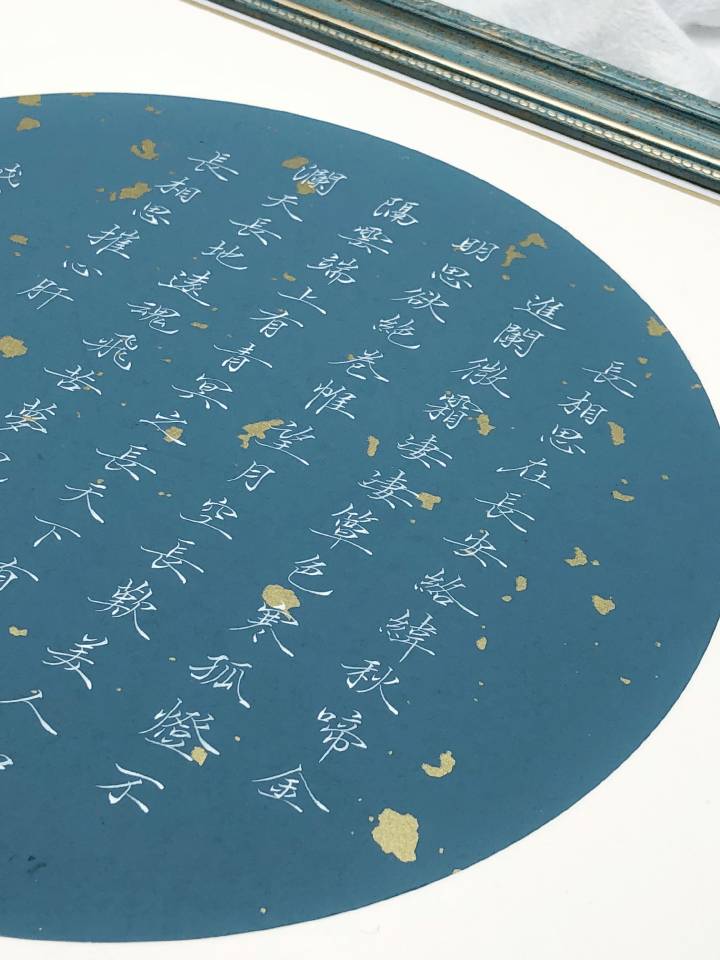 長相思在長安絡緯秋啼金
進闌微霜淒淒簟色寒孤燈不
明思欲絕卷帷望月空長歎美人
隔雲端上有青冥之長天下有
瀾天長地遠魂飛苦夢
長相思摧心肝